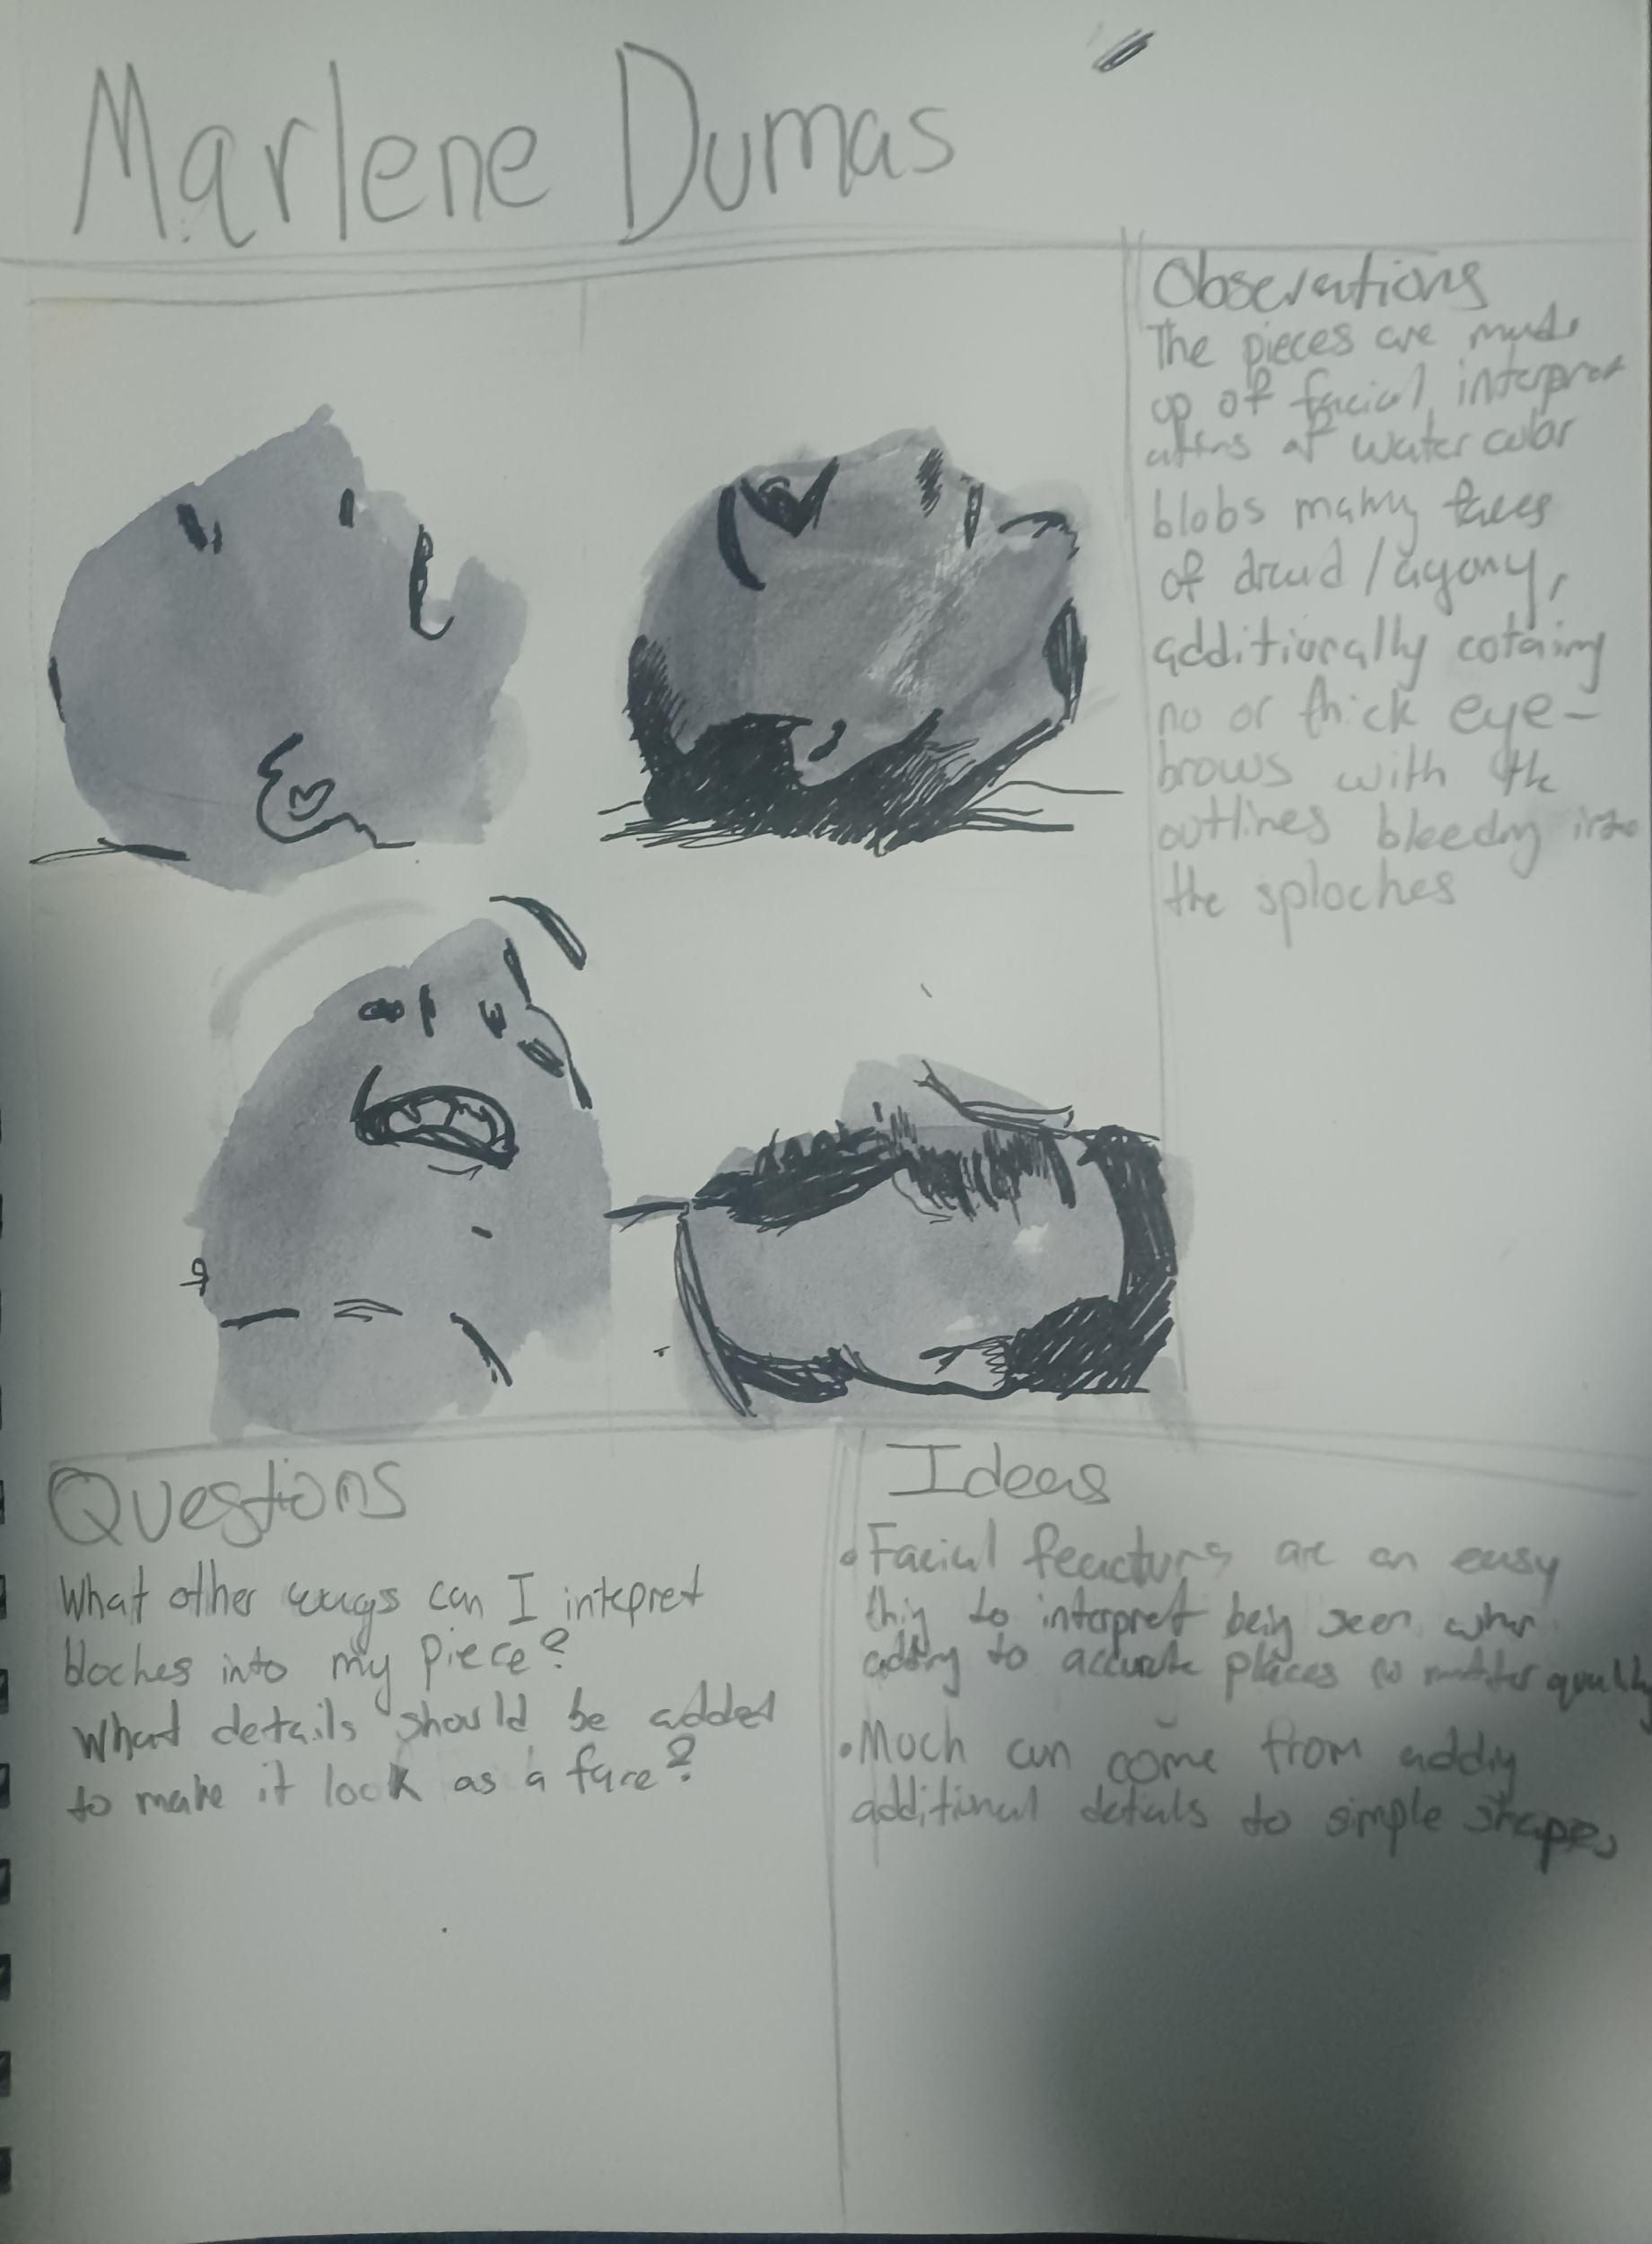 Marlene Dumas
Observations
The pieces are made
up of facial interpret
ations of water color
blobs many faces
of dread/agony,
additionally cotaing
no or thick eye-
brows with the
outlines bleedng into
the sploches
Questions
What other can I intepret
bloches into my piece?
What details should be added
to make it look as a face?
Ideas
• Facial feactures are an easy
thing to interpret being seen when
adding to accurate places no matter quality
• Much can come from adding
additional details to simple shapes